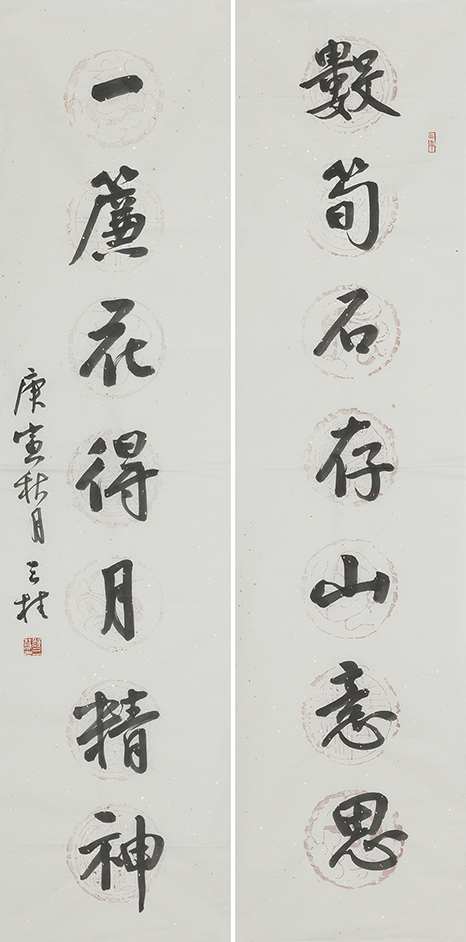 數筍石存山意思
一簾花得月精神
庚寅秋月 三桂